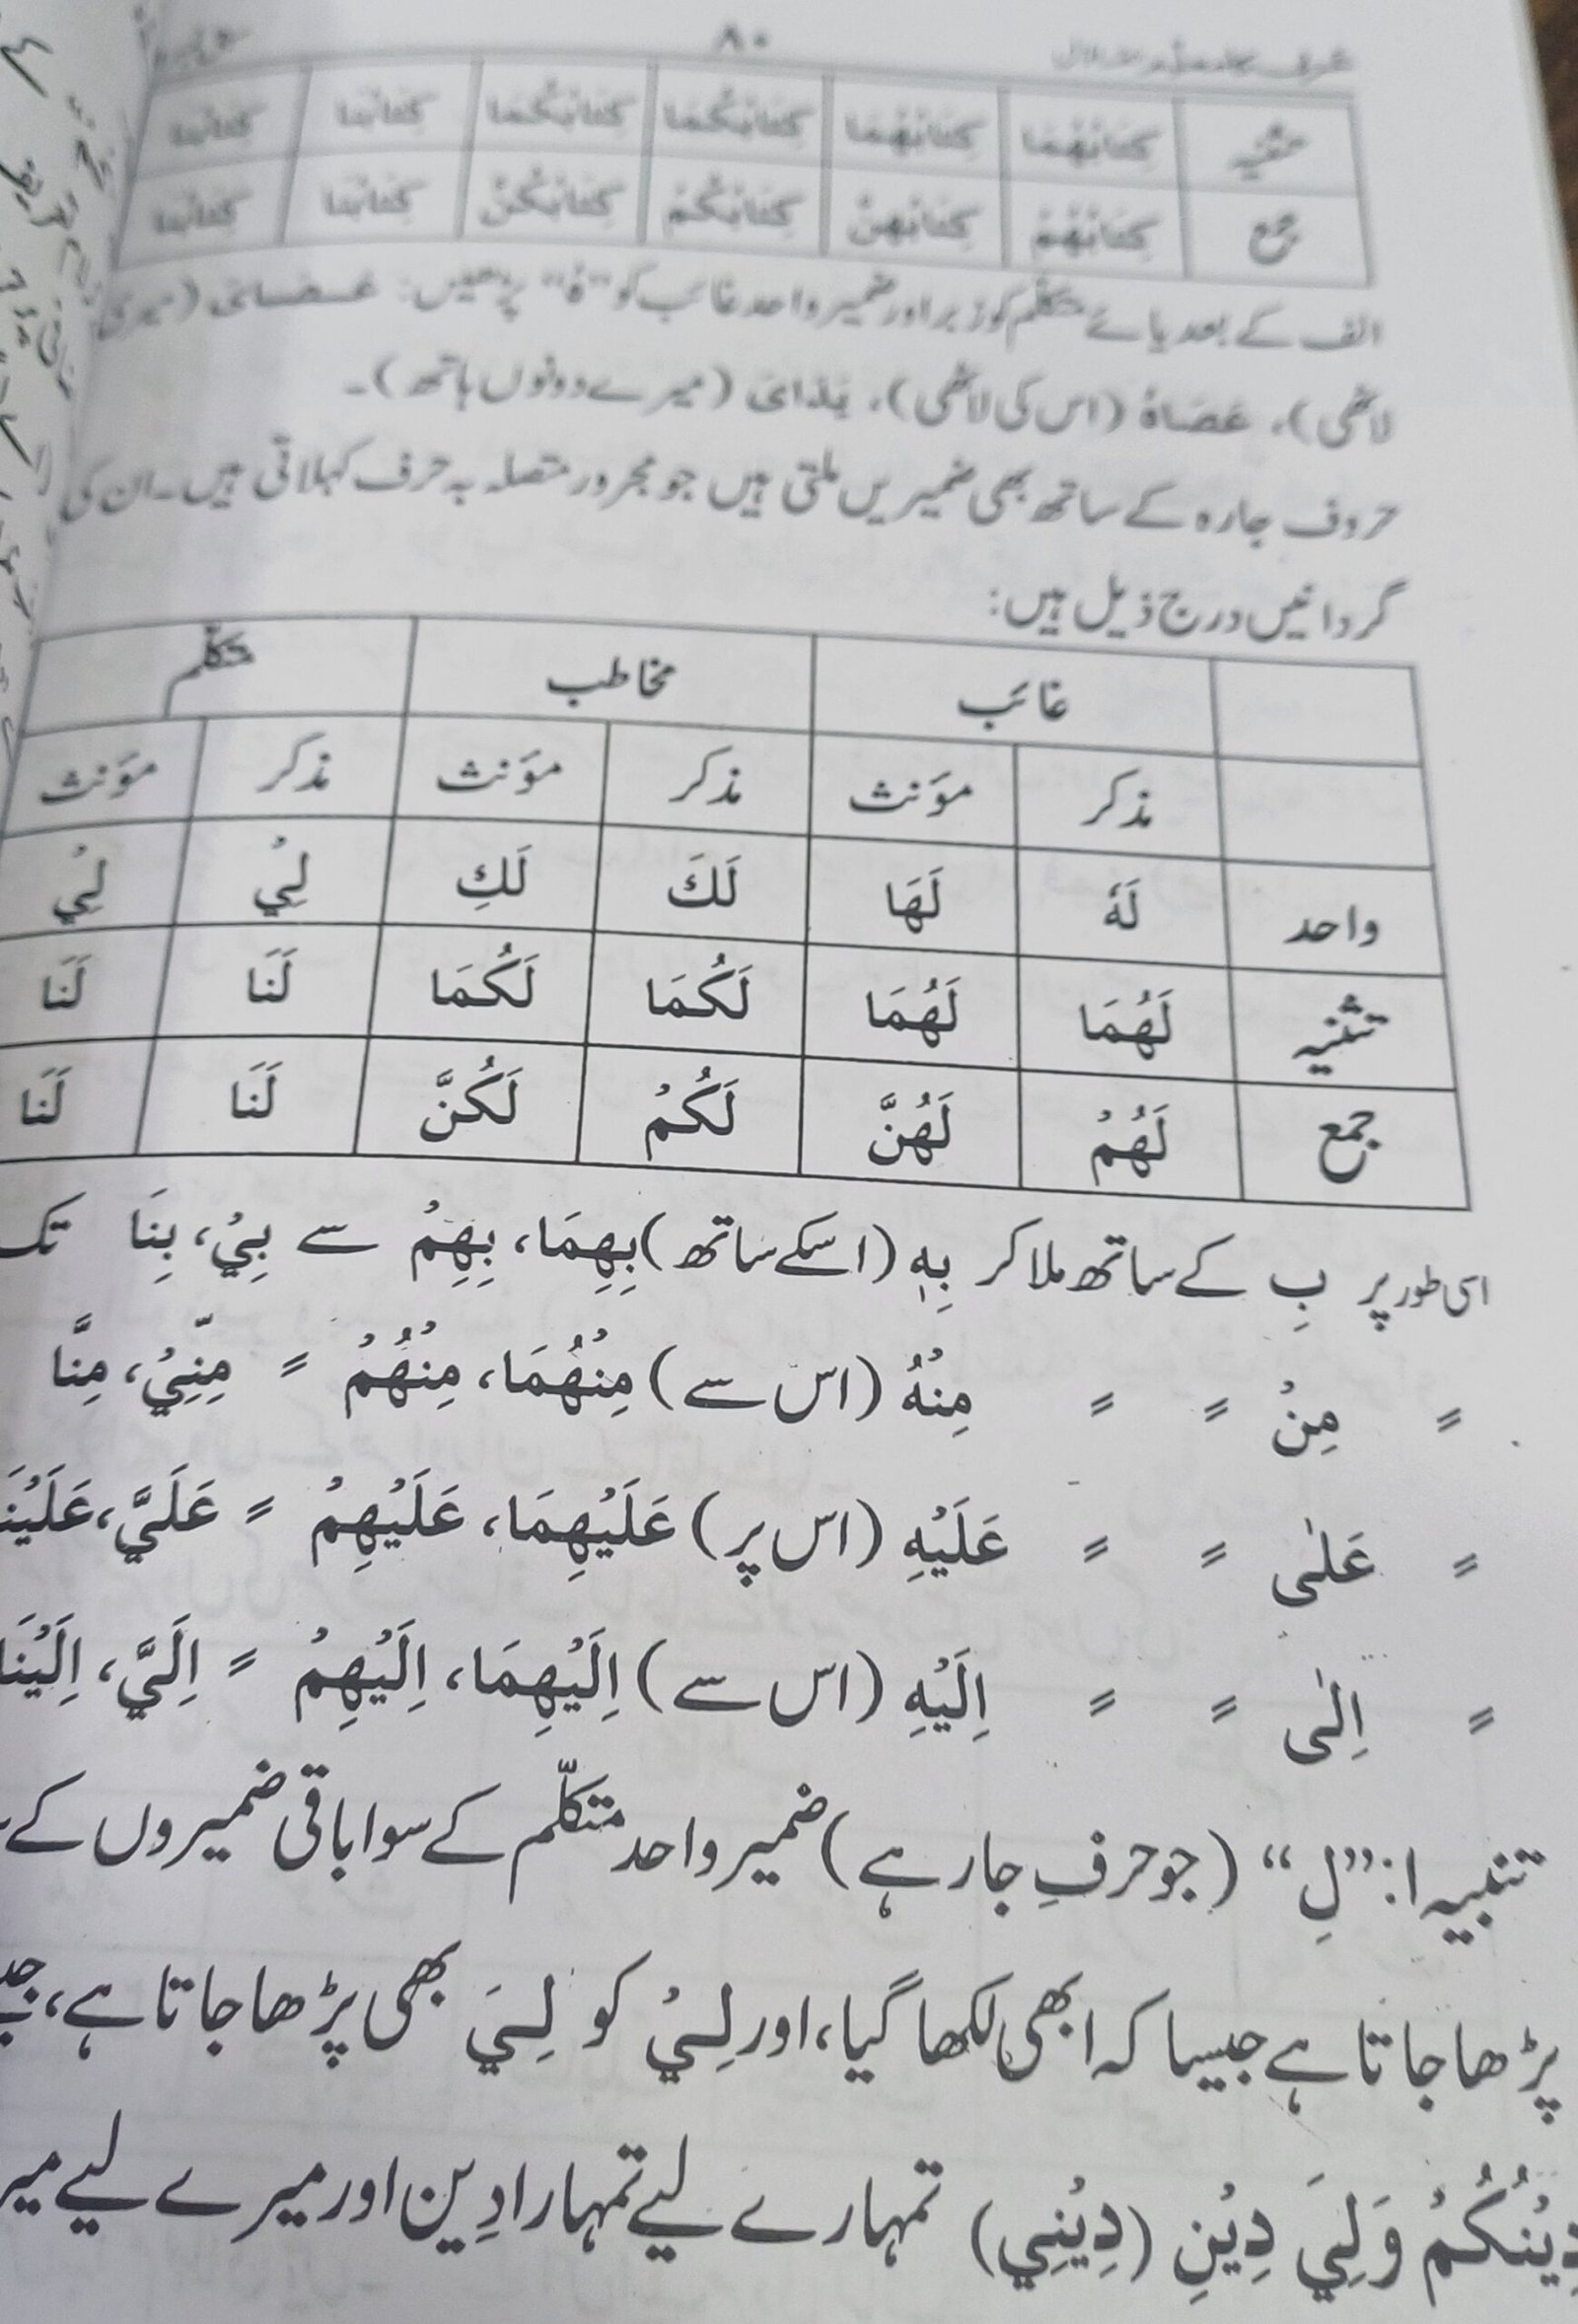 ۸۰
تثنیہ کِتَابُهُمَا کِتَابُهُمَا کِتَابُکُمَا کِتَابُکُمَا کِتَابُنَا کِتَابُنَا
جمع کِتَابُهُمْ کِتَابُهُنَّ کِتَابُکُمْ کِتَابُکُنَّ کِتَابُنَا کِتَابُنَا
الف کے بعد یائے متکلّم کو زبر اور ضمیر واحد غائب کو "هُ" پڑھیں: عَصَایَ (میری
لاٹھی)، عَصَاهُ (اس کی لاٹھی)، یَدَایَ (میرے دونوں ہاتھ)۔
حروف جارہ کے ساتھ بھی ضمیریں ملتی ہیں جو مجرور متصلہ بہ حرف کہلاتی ہیں۔ ان کی
گردانیں درج ذیل ہیں:
غائب مخاطب متکلّم
مذکر مؤنث مذکر مؤنث مذکر مؤنث
واحد لَهٗ لَهَا لَكَ لَكِ لِيْ لِيْ
تثنیہ لَهُمَا لَهُمَا لَكُمَا لَكُمَا لَنَا لَنَا
جمع لَهُمْ لَهُنَّ لَكُمْ لَكُنَّ لَنَا لَنَا
اسی طور پر بِ کے ساتھ ملا کر بِهٖ (اسکے ساتھ) بِهِمَا، بِهِمْ سے بِيْ، بِنَا تک
〃 مِنْ 〃 〃 مِنْهُ (اس سے) مِنْهُمَا، مِنْهُمْ 〃 مِنِّيْ، مِنَّا
〃 عَلٰى 〃 〃 عَلَيْهِ (اس پر) عَلَيْهِمَا، عَلَيْهِمْ 〃 عَلَيَّ، عَلَيْنَا
〃 اِلٰى 〃 〃 اِلَيْهِ (اس سے) اِلَيْهِمَا، اِلَيْهِمْ 〃 اِلَيَّ، اِلَيْنَا
تنبیہ ۱: "لِ" (جو حرفِ جار ہے) ضمیر واحد متکلّم کے سوا باقی ضمیروں کے
پڑھا جاتا ہے جیسا کہ ابھی لکھا گیا، اور لِيْ کو لِيَ بھی پڑھا جاتا ہے،
دِيْنُكُمْ وَلِيَ دِيْنِ (دِيْنِي) تمہارے لیے تمہارا دِین اور میرے لیے